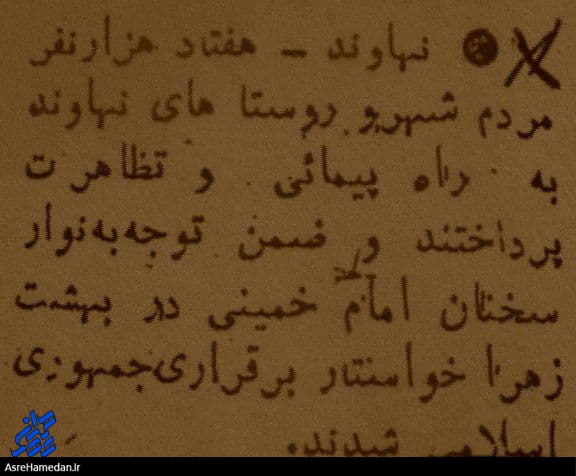 نهاوند - هفتاد هزار نفر
مردم شهر و روستا های نهاوند
به راه پیمائی و تظاهرات
پرداختند و ضمن توجه به نوار
سخنان امام خمینی در بهشت
زهرا خواستار برقراری جمهوری
اسلامی شدند.
AsreHamedan.ir